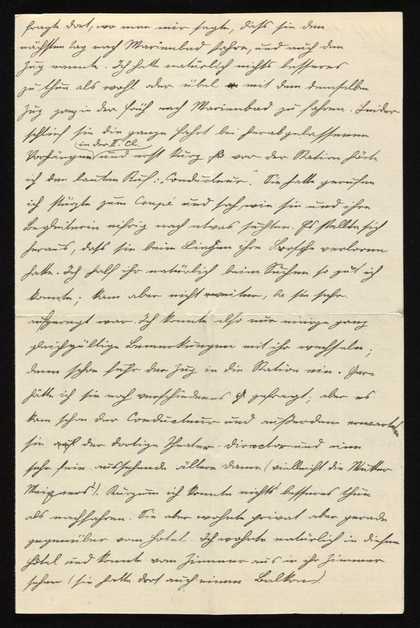 fragte dort, wo man mir sagte, daß sie den
nächsten Tag nach Marienbad fahre, und mich den
Zug nannte. Ich hatte natürlich nichts besseres
zu thun als wohl oder übel mit dem demselben
Zug in der früh nach Marienbad zu fahren. Leider
schlief sie die ganze Fahrt bei herabgelassenen
(in der II. Cl.)
Vorhängen und erst kurz vor der Station hörte
ich den lauten Ruf: „Conducteur". Sie hatte gerufen
ich stürzte zum Coupé und sah, wie sie und ihre
Begleiterin eifrig nach etwas suchten. Es stellte sich
heraus, daß sie beim Liegen ihre Brosche verloren
hatte. Ich half ihr natürlich beim Suchen so gut ich
konnte; kam aber nicht weiter, da sie sehr
aufgeregt war. Ich konnte also nur einige ganz
gleichgültige Bemerkungen mit ihr wechseln;
denn schon fuhr der Zug in die Station ein. Gern
hätte ich sie noch verschiedenes gefragt; aber es
kam schon der Conducteur und außerdem erwarteten
sie der dortige Theater-director und eine
sehr fein aussehende ältere Dame (vielleicht die Mutter
). Kurzum ich konnte nichts besseres thun
als nachfahren. Sie aber wohnte privat aber gerade
gegenüber vom Hotel. Ich wohnte natürlich in diesem
Hotel und konnte vom Zimmer aus in ihr Zimmer
sehen (sie hatte dort auch einen Balkon)